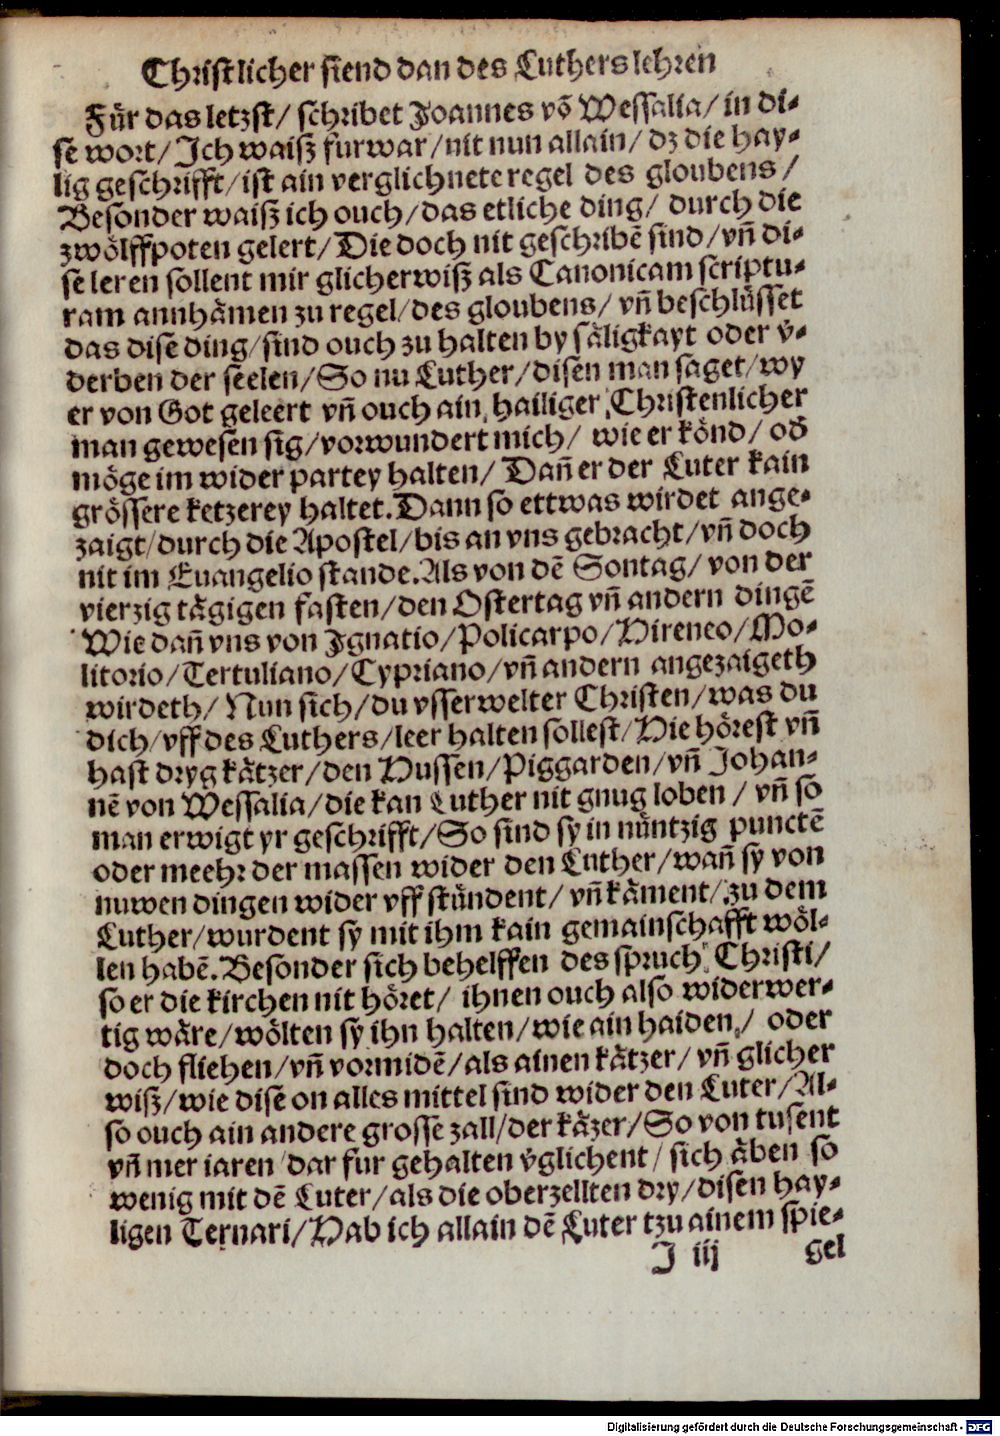 Christlicher siend dan des Luthers lehren
Für das letzst/ schribet Joannes võ Wessalia/ in di-
se wort/ Ich waiß furwar/ nit nun allain/ dz die hay-
lig geschrifft/ ist ain verglichnete regel des gloubens/
Besonder waiß ich ouch/ das etliche ding/ durch die
zwölffpoten gelert/ Die doch nit geschribẽ sind/ vñ di-
se leren sollent mir glicherwiß als Canonicam scriptu-
ram annhämen zu regel/ des gloubens/ vñ beschlüsset
das dise ding/ sind ouch zu halten by säligkayt oder v̄-
derben der seelen/ So nu Luther/ disen man saget/ wy
er von Got geleert vñ ouch ain hailiger Christenlicher
man gewesen sig/ vorwundert mich/ wie er könd/ od̄
möge im wider partey halten/ Dañ er der Luter kain
grössere ketzerey haltet. Dann so ettwas wirdet ange-
zaigt/ durch die Apostel/ bis an vns gebracht/ vñ doch
nit im Euangelio stande. Als von dẽ Sontag/ von der
vierzig tägigen fasten/ den Ostertag vñ andern dingẽ
Wie dañ vns von Ignatio/ Policarpo/ Hireneo/ Mo-
litorio/ Tertuliano/ Cypriano/ vñ andern angezaigeth
wirdeth/ Nun sich/ du vsserwelter Christen/ was du
dich/ vff des Luthers/ leer halten sollest/ Hie hörest vñ
hast dryg kätzer/ den Hussen/ Piggarden/ vñ Johan-
nẽ von Wessalia/ die kan Luther nit gnug loben/ vñ so
man erwigt yr geschrifft/ So sind sy in nüntzig punctẽ
oder meehr der massen wider den Luther/ wañ sy von
nuwen dingen wider vff stündent/ vñ käment/ zu dem
Luther/ wurdent sy mit ihm kain gemainschafft wöl-
len habẽ. Besonder sich behelffen des spruch Christi/
so er die kirchen nit höret/ ihnen ouch also widerwer-
tig wäre/ wölten sy ihn halten/ wie ain haiden/ oder
doch fliehen/ vñ vormidẽ/ als ainen kätzer/ vñ glicher
wiß/ wie dise on alles mittel sind wider den Luter/ Al-
so ouch ain andere grosse zall/ der käzer/ So von tusent
vñ mer iaren dar fur gehalten v̄glichent/ sich äben so
wenig mit dẽ Luter/ als die oberzellten dry/ disen hay-
ligen Ternari/ Hab ich allain dẽ Luter tzu ainem spie-
J iij gel
Digitalisierung gefördert durch die Deutsche Forschungsgemeinschaft - DFG